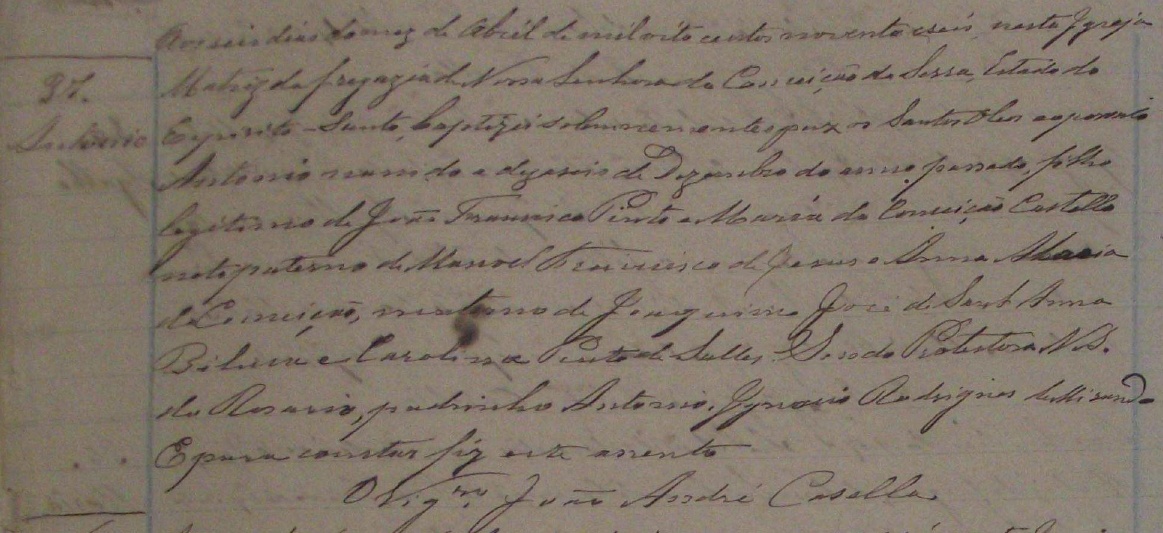 Aos seis dias do mez de Abril de mil oito centos noventa e seis, nesta Igreja
37.
Matriz da freguzia de Nossa Senhora da Conceição da Serra, Estado do
Antonio
Espirito-Santo, baptizei solemnemente e puz os Santos Oleos ao parvulo
Antonio nascido a dezaseis de Dezembro do anno passado, filho
legitimo de João Francisco Pinto e Maria da Conceição Castello
neto paterno de Manoel Francisco de Jesus e Anna Maria
da Conceição, materno de Joaquim José de Sant Anna
e Carolina Pinto de Salles. Sendo Protectora N. S.
do Rosario, padrinho Antonio Ignacio Rodrigues de Miranda
E para constar fiz este assento
O Vigro João André Casella